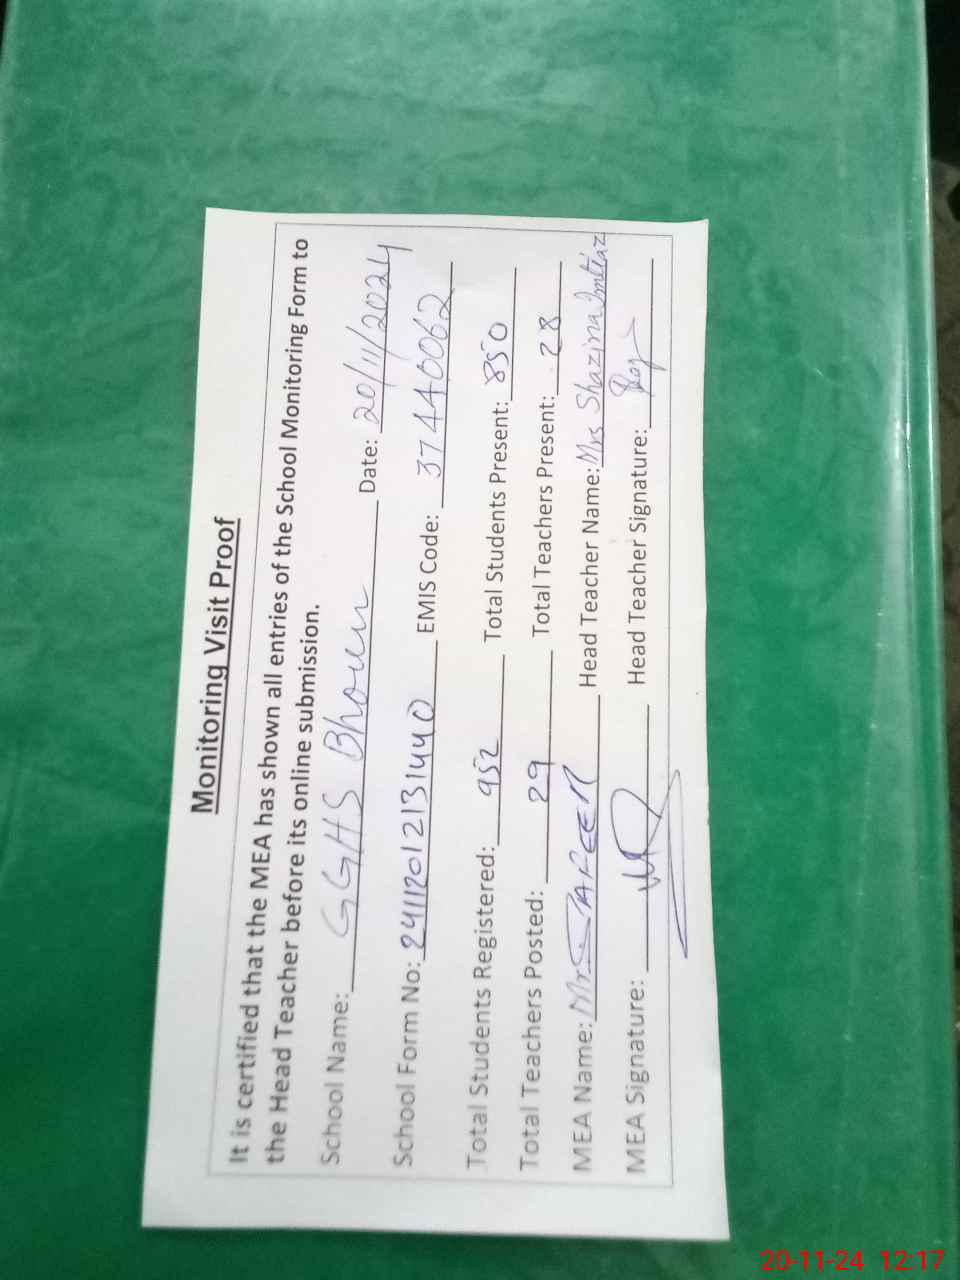 Monitoring Visit Proof
It is certified that the MEA has shown all entries of the School Monitoring Form to
the Head Teacher before its online submission.
School Name: GGHS Bhoun Date: 20/11/2024
School Form No: 24112012131440 EMIS Code: 37440062
Total Students Registered: 952 Total Students Present: 850
Total Teachers Posted: 29 Total Teachers Present: 28
MEA Name: Mr. Head Teacher Name: Mrs Shazina Imtiaz
MEA Signature: Head Teacher Signature:
20-11-24 12:17